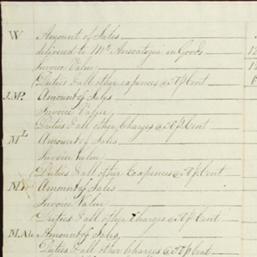 W Amount of Sales
delivered to Mr in Goods
Invoice Value
Duties & all other expences a % p Cent
J.M. Amount of Sales
Invoice Value
Duties & all other Charges a % p Cent
M L Amount of Sales
Invoice Value
Duties & all other Expences a % p Cent
Amount of Sales
Invoice Value
Duties & all other Charges a % p Cent
M.A. Amount of Sales
Invoice Value
Duties & all other Charges a % p Cent